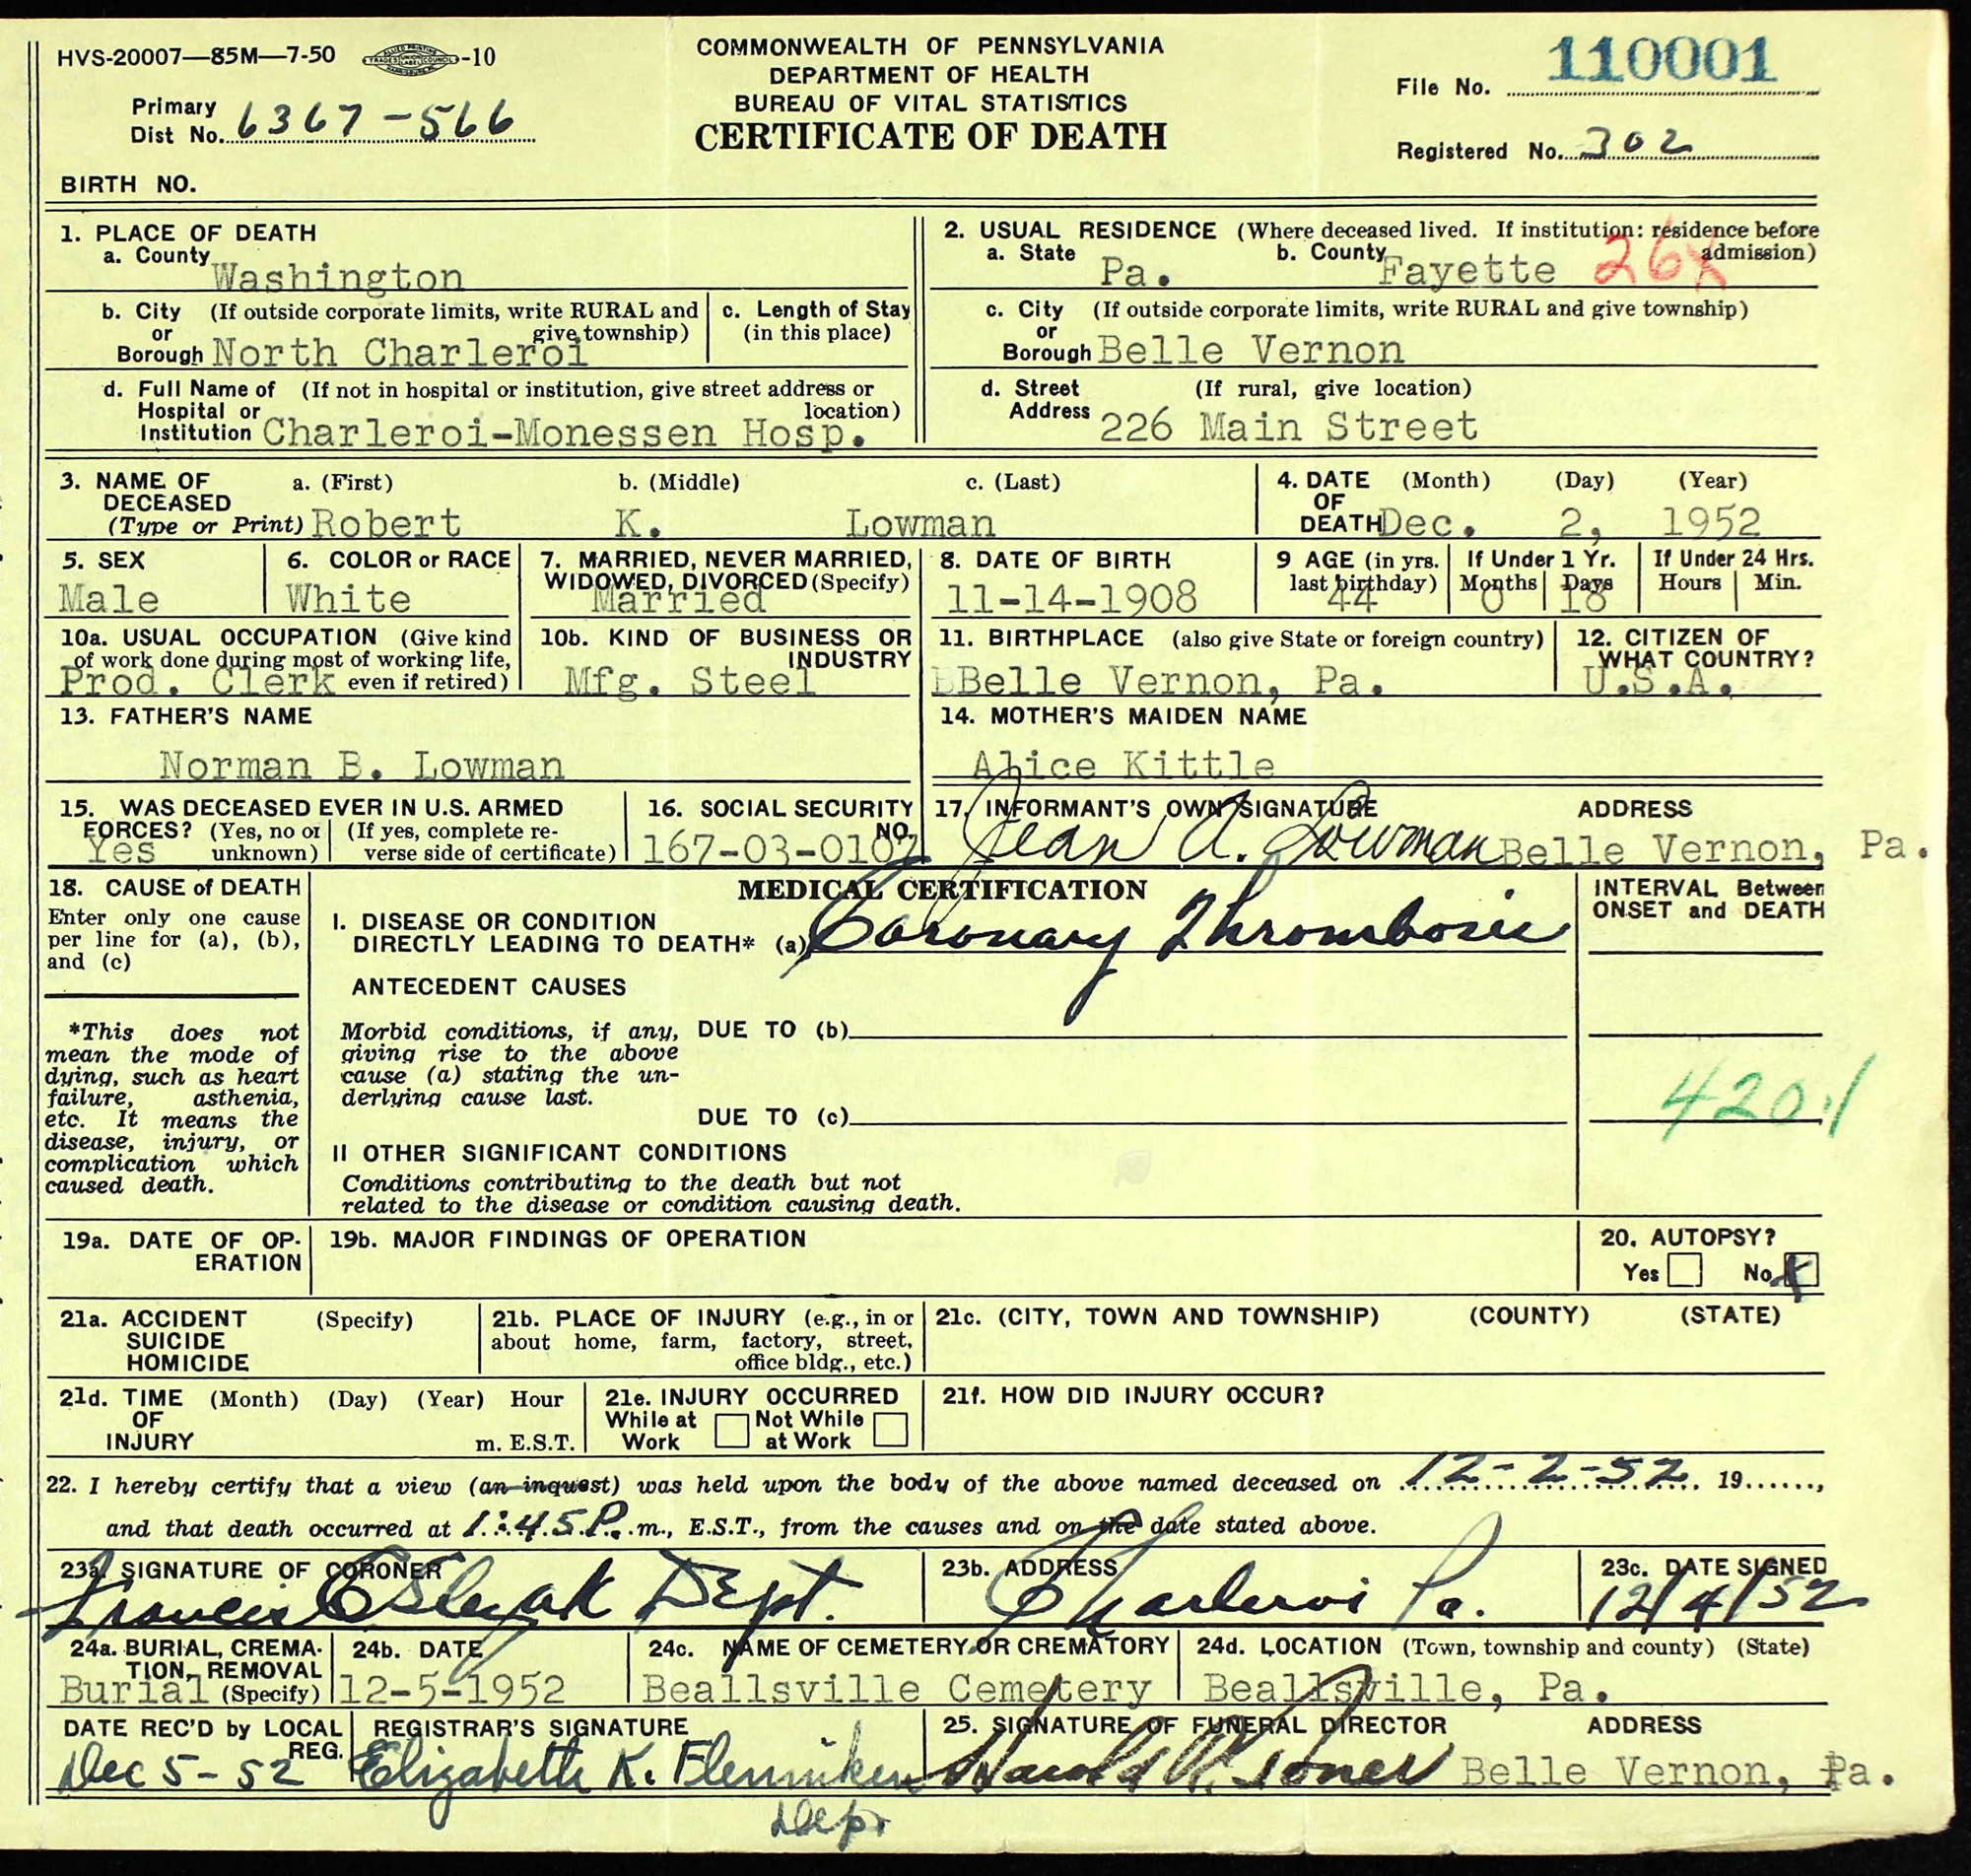 HVS-20007—85M—7-50 -10
COMMONWEALTH OF PENNSYLVANIA
DEPARTMENT OF HEALTH
BUREAU OF VITAL STATISTICS
CERTIFICATE OF DEATH
File No. 110001
Primary
Dist No. 6367-566
Registered No. 302
BIRTH NO.
1. PLACE OF DEATH
a. County Washington
2. USUAL RESIDENCE (Where deceased lived. If institution: residence before
admission)
a. State Pa. b. County Fayette 26X
b. City (If outside corporate limits, write RURAL and
or give township)
Borough North Charleroi
c. Length of Stay
(in this place)
c. City (If outside corporate limits, write RURAL and give township)
or
Borough Belle Vernon
d. Full Name of (If not in hospital or institution, give street address or
Hospital or location)
Institution Charleroi-Monessen Hosp.
d. Street (If rural, give location)
Address 226 Main Street
3. NAME OF a. (First) b. (Middle) c. (Last)
DECEASED
(Type or Print) Robert K. Lowman
4. DATE (Month) (Day) (Year)
OF
DEATH Dec. 2, 1952
5. SEX
Male
6. COLOR or RACE
White
7. MARRIED, NEVER MARRIED,
WIDOWED, DIVORCED (Specify)
Married
8. DATE OF BIRTH
11-14-1908
9 AGE (in yrs.
last birthday)
44
If Under 1 Yr.
Months Days
0 18
If Under 24 Hrs.
Hours Min.
10a. USUAL OCCUPATION (Give kind
of work done during most of working life,
Prod. Clerk even if retired)
10b. KIND OF BUSINESS OR
INDUSTRY
Mfg. Steel
11. BIRTHPLACE (also give State or foreign country)
Belle Vernon, Pa.
12. CITIZEN OF
WHAT COUNTRY?
U.S.A.
13. FATHER'S NAME
Norman B. Lowman
14. MOTHER'S MAIDEN NAME
Alice Kittle
15. WAS DECEASED EVER IN U.S. ARMED
FORCES? (Yes, no or (If yes, complete re-
Yes unknown) verse side of certificate)
16. SOCIAL SECURITY
NO.
167-03-0107
17. INFORMANT'S OWN SIGNATURE ADDRESS
Jean A. Lowman Belle Vernon, Pa.
18. CAUSE of DEATH
Enter only one cause
per line for (a), (b),
and (c)
*This does not
mean the mode of
dying, such as heart
failure, asthenia,
etc. It means the
disease, injury, or
complication which
caused death.
MEDICAL CERTIFICATION
I. DISEASE OR CONDITION
DIRECTLY LEADING TO DEATH* (a) Coronary Thrombosis
ANTECEDENT CAUSES
Morbid conditions, if any, DUE TO (b)
giving rise to the above
cause (a) stating the un-
derlying cause last.
DUE TO (c)
II OTHER SIGNIFICANT CONDITIONS
Conditions contributing to the death but not
related to the disease or condition causing death.
INTERVAL Between
ONSET and DEATH
420.1
19a. DATE OF OP-
ERATION
19b. MAJOR FINDINGS OF OPERATION
20. AUTOPSY?
Yes No X
21a. ACCIDENT (Specify)
SUICIDE
HOMICIDE
21b. PLACE OF INJURY (e.g., in or
about home, farm, factory, street,
office bldg., etc.)
21c. (CITY, TOWN AND TOWNSHIP) (COUNTY) (STATE)
21d. TIME (Month) (Day) (Year) Hour
OF
INJURY m. E.S.T.
21e. INJURY OCCURRED
While at Not While
Work at Work
21f. HOW DID INJURY OCCUR?
22. I hereby certify that a view (an inquest) was held upon the body of the above named deceased on 12-2-52, 19......,
and that death occurred at 1:45 P. m., E.S.T., from the causes and on the date stated above.
23a. SIGNATURE OF CORONER
Francis Dept.
23b. ADDRESS
Charleroi Pa.
23c. DATE SIGNED
12/4/52
24a. BURIAL, CREMA-
TION, REMOVAL
Burial (Specify)
24b. DATE
12-5-1952
24c. NAME OF CEMETERY OR CREMATORY
Beallsville Cemetery
24d. LOCATION (Town, township and county) (State)
Beallsville, Pa.
DATE REC'D by LOCAL
REG.
Dec 5-52
REGISTRAR'S SIGNATURE
Elizabeth K. Flenniken
Dep.
25. SIGNATURE OF FUNERAL DIRECTOR ADDRESS
Harold Belle Vernon, Pa.